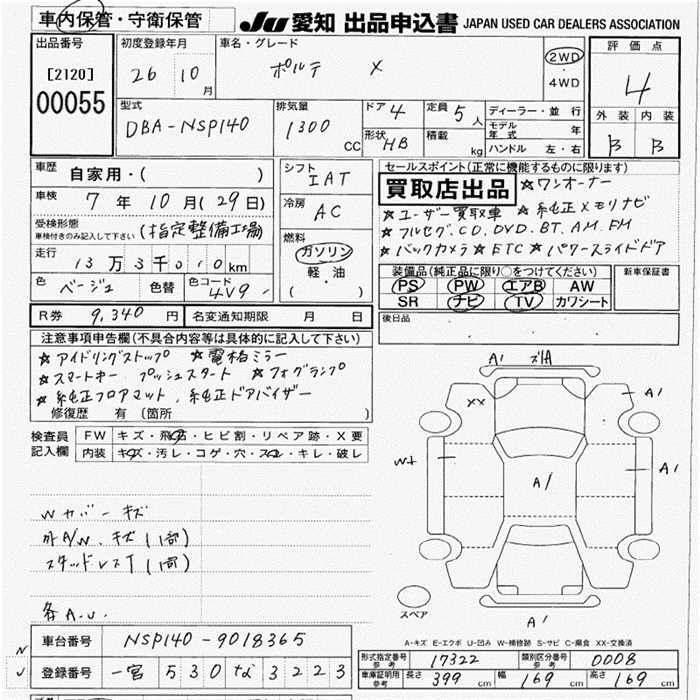 車内保管・守衛保管
JU 愛知 出品申込書 JAPAN USED CAR DEALERS ASSOCIATION
出品番号
[2120]
00055
初度登録年月
26 10月
車名・グレード
ポルテ X
2WD
・
4WD
評価点
4
外装 内装
B B
型式
DBA-NSP140
排気量
1300 CC
ドア 4
形状 HB
定員 5人
積載 kg
ディーラー・並行
モデル年式 年
ハンドル 左・右
車歴
自家用・( )
車検
7年10月(29日)
受検形態
車検付きのみ記入して下さい
(指定整備工場)
走行
13万3千010km
色 ベージュ 色替
色コード 4V9
シフト
IAT
冷房
AC
燃料
ガソリン
軽・油
( ・ )
セールスポイント(正常に機能するものに限ります)
買取店出品
☆ワンオーナー
★ユーザー買取車 ★純正メモリナビ
★フルセグ.CD.DVD.BT.AM.FM
★バックカメラ ★ETC ★パワースライドドア
装備品(純正品に限り○をつけてください)
PS PW エアB AW
SR ナビ TV カワシート
新車保証書
後日品
R券 9,340円
名変通知期限 月 日
注意事項申告欄(不具合内容等は具体的に記入して下さい)
★アイドリングストップ ★電格ミラー
★スマートキー プッシュスタート ★フォグランプ
★純正フロアマット、純正ドアバイザー
修復歴 有 (箇所 )
検査員
記入欄
FW キズ・飛石・ヒビ割・リペア跡・X要
内装 キズ・汚レ・コゲ・穴・スレ・キレ・破レ
Wカバーキズ
外A/W.キズ(1部)
スタッドレスT(1部)
各A.U.
A1
XX
A1
W+
A1
A1
A1
スペア
A-キズ E-エクボ U-凹み W-補修跡 S-サビ C-腐食 XX-交換済
車台番号 NSP140-9018365
登録番号 一宮 530 な 3223
型式指定番号
参考
17322
類別区分番号
参考
0008
車庫証明用
参考
長さ 399cm 幅 169cm 高さ 169cm